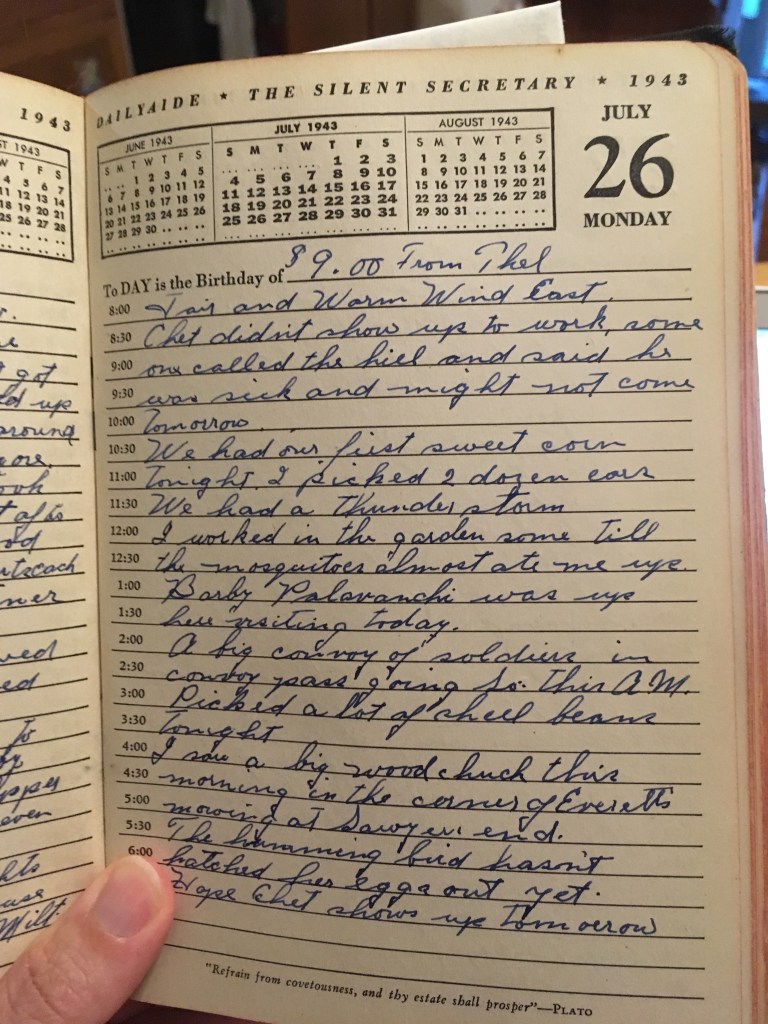 1943
DAILYAIDE ★ THE SILENT SECRETARY ★ 1943
ST 1943
W T F S
4 5 6 7
11 12 13 14
18 19 20 21
25 26 27 28
JUNE 1943
S M T W T F S
. . . . 1 2 3 4 5
6 7 8 9 10 11 12
13 14 15 16 17 18 19
20 21 22 23 24 25 26
27 28 29 30 . . . . . .
JULY 1943
S M T W T F S
. . . . . . . . 1 2 3
4 5 6 7 8 9 10
11 12 13 14 15 16 17
18 19 20 21 22 23 24
25 26 27 28 29 30 31
AUGUST 1943
S M T W T F S
1 2 3 4 5 6 7
8 9 10 11 12 13 14
15 16 17 18 19 20 21
22 23 24 25 26 27 28
29 30 31 . . . . . . . .
JULY
26
MONDAY
To DAY is the Birthday of $9.00 From Thel
8:00 Fair and Warm Wind East.
8:30 Chet didn't show up to work, some
9:00 one called the hill and said he
9:30 was sick and might not come
10:00 tomorrow.
10:30 We had our first sweet corn
11:00 tonight. I picked 2 dozen ears
11:30 We had a thunder storm
12:00 I worked in the garden some till
12:30 the mosquitoes almost ate me up.
1:00 Barby Palavanchi was up
1:30 here visiting today.
2:00 A big convoy of soldiers in
2:30 convoy pass going So. this A.M.
3:00 Picked a lot of shell beans
3:30 tonight
4:00 I saw a big woodchuck this
4:30 morning in the corner of Everetts
5:00 mowing at Sawyer end.
5:30 The humming bird hasn't
6:00 hatched her eggs out yet.
Hope Chet shows up tomorrow
"Refrain from covetousness, and thy estate shall prosper"—PLATO
got
up
around
ore.
ook
ner
ed
to
pper
even
Milt.